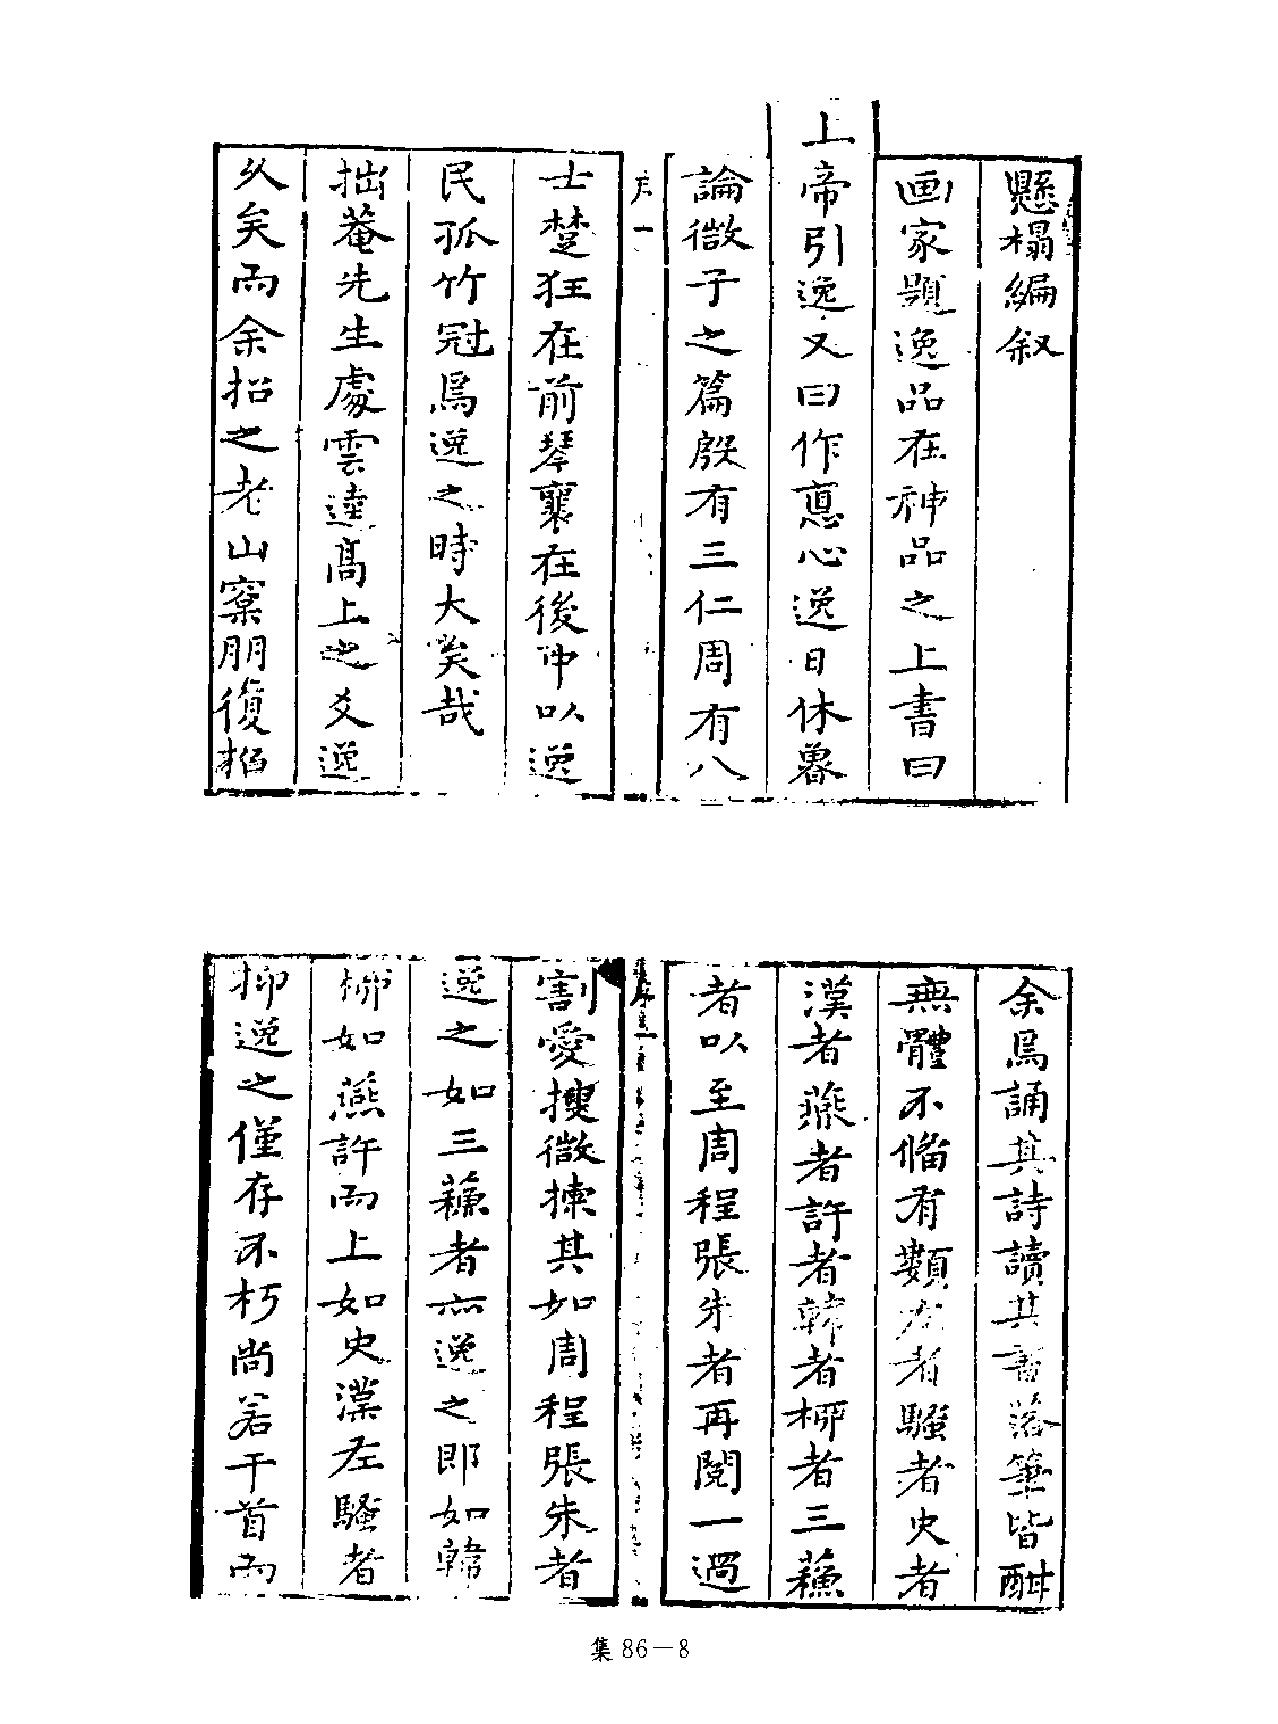 懸榻編叙
画家題逸品在神品之上書曰
上帝引逸又曰作悳心逸日休魯
論微子之篇殷有三仁周有八
士楚狂在前琴襄在後中以逸
民孤竹冠爲逸之時大矣哉
拙菴先生處雲逵高上之爻逸
久矣而余招之老山寀朋復拍
余爲誦其詩讀其書落筆皆酣
無體不備有類左者騷者史者
漢者燕者許者韓者柳者三蘇
者以至周程張朱者再閱一過
割愛搜微揀其如周程張朱者
逸之如三蘇者亦逸之即如韓
柳如燕許而上如史漢左騷者
抑逸之僅存不朽尚若干首而
集 86－8